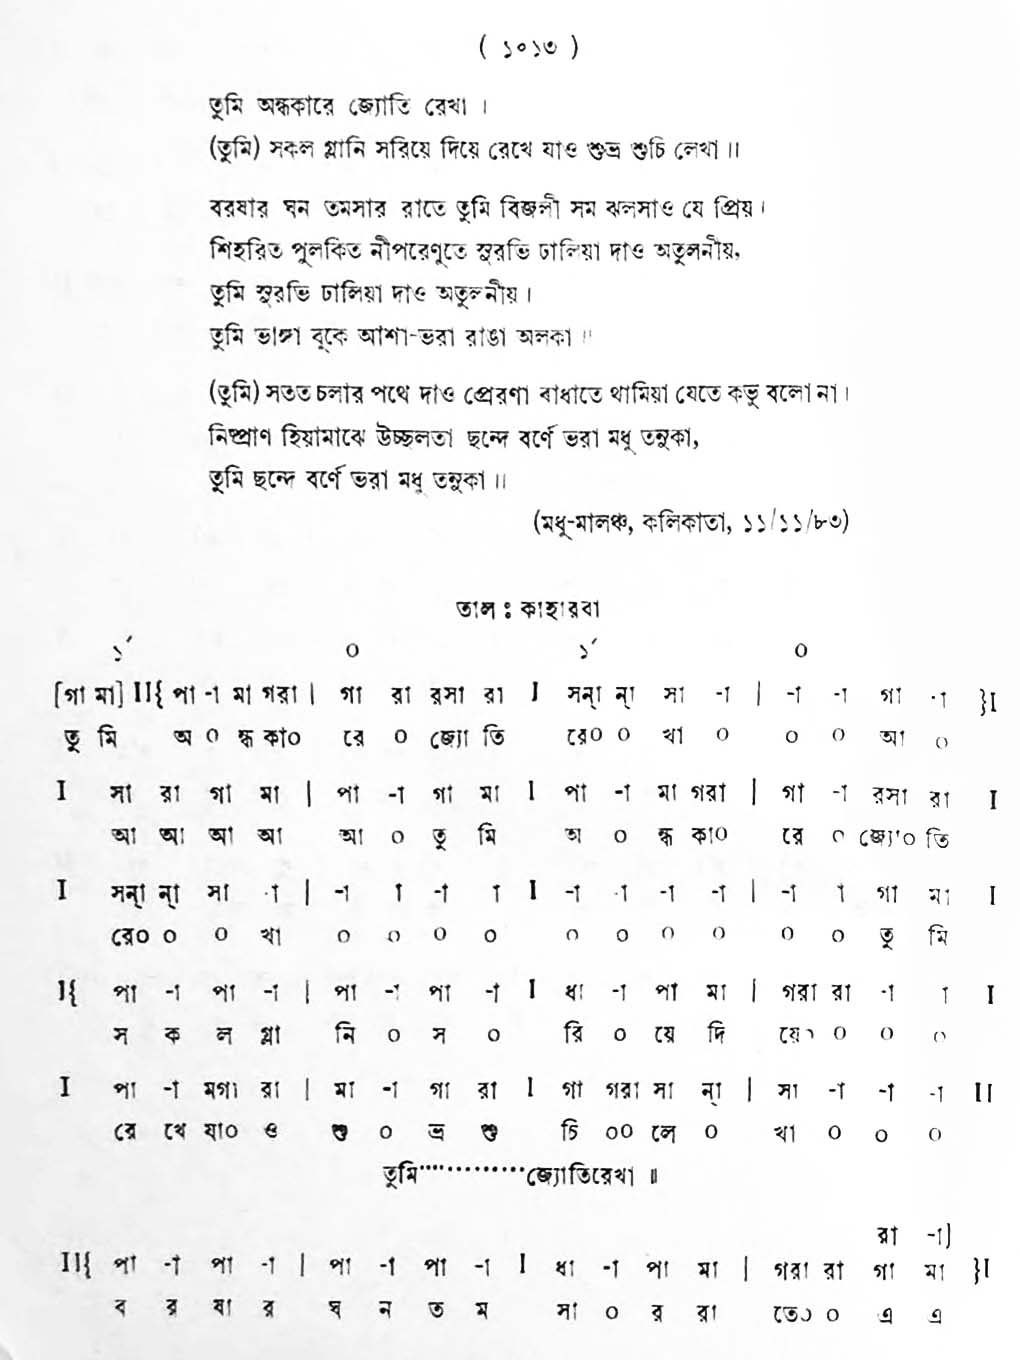 ( ১০১৩ )
তুমি অন্ধকারে জ্যোতি রেখা ।
(তুমি) সকল গ্লানি সরিয়ে দিয়ে রেখে যাও শুভ্র শুচি লেখা ॥
বরষার ঘন তমসার রাতে তুমি বিজলী সম ঝলসাও যে প্রিয় ।
শিহরিত পুলকিত নীপরেণুতে সুরভি ঢালিয়া দাও অতুলনীয়,
তুমি সুরভি ঢালিয়া দাও অতুলনীয় ।
তুমি ভাঙ্গা বুকে আশা-ভরা রাঙা অলকা ॥
(তুমি) সতত চলার পথে দাও প্রেরণা বাধাতে থামিয়া যেতে কভু বলো না ।
নিষ্প্রাণ হিয়ামাঝে উচ্ছলতা ছন্দে বর্ণে ভরা মধু তনুকা,
তুমি ছন্দে বর্ণে ভরা মধু তনুকা ॥
(মধু-মালঞ্চ, কলিকাতা, ১১/১১/৮৩)
তাল : কাহারবা
১´ ০ ১´ ০
[গা মা] II{ পা -া মা গরা | গা রা রসা রা I সন্া ন্া সা -া | -া -া গা -া }I
তু মি অ ০ ন্ধ কা০ রে ০ জ্যো তি রে০ ০ খা ০ ০ ০ আ ০
I সা রা গা মা | পা -া গা মা I পা -া মা গরা | গা -া রসা রা I
আ আ আ আ আ ০ তু মি অ ০ ন্ধ কা০ রে ০ জ্যো০ তি
I সন্া ন্া সা -া | -া া -া া I -া -া -া -া | -া া গা মা I
রে০ ০ ০ খা ০ ০ ০ ০ ০ ০ ০ ০ ০ ০ তু মি
I{ পা -া পা -া | পা -া পা -া I ধা -া পা মা | গরা রা -া া I
স ক ল গ্লা নি ০ স ০ রি ০ য়ে দি য়ে০ ০ ০ ০
I পা -া মগা রা | মা -া গা রা I গা গরা সা ন্া | সা -া -া -া II
রে খে যা০ ও শু ০ ভ্র শু চি ০০ লে ০ খা ০ ০ ০
তুমি············জ্যোতিরেখা ॥
রা -া]
II{ পা -া পা -া | পা -া পা -া I ধা -া পা মা | গরা রা গা মা }I
ব র ষা র ঘ ন ত ম সা ০ র রা তে০ ০ এ এ